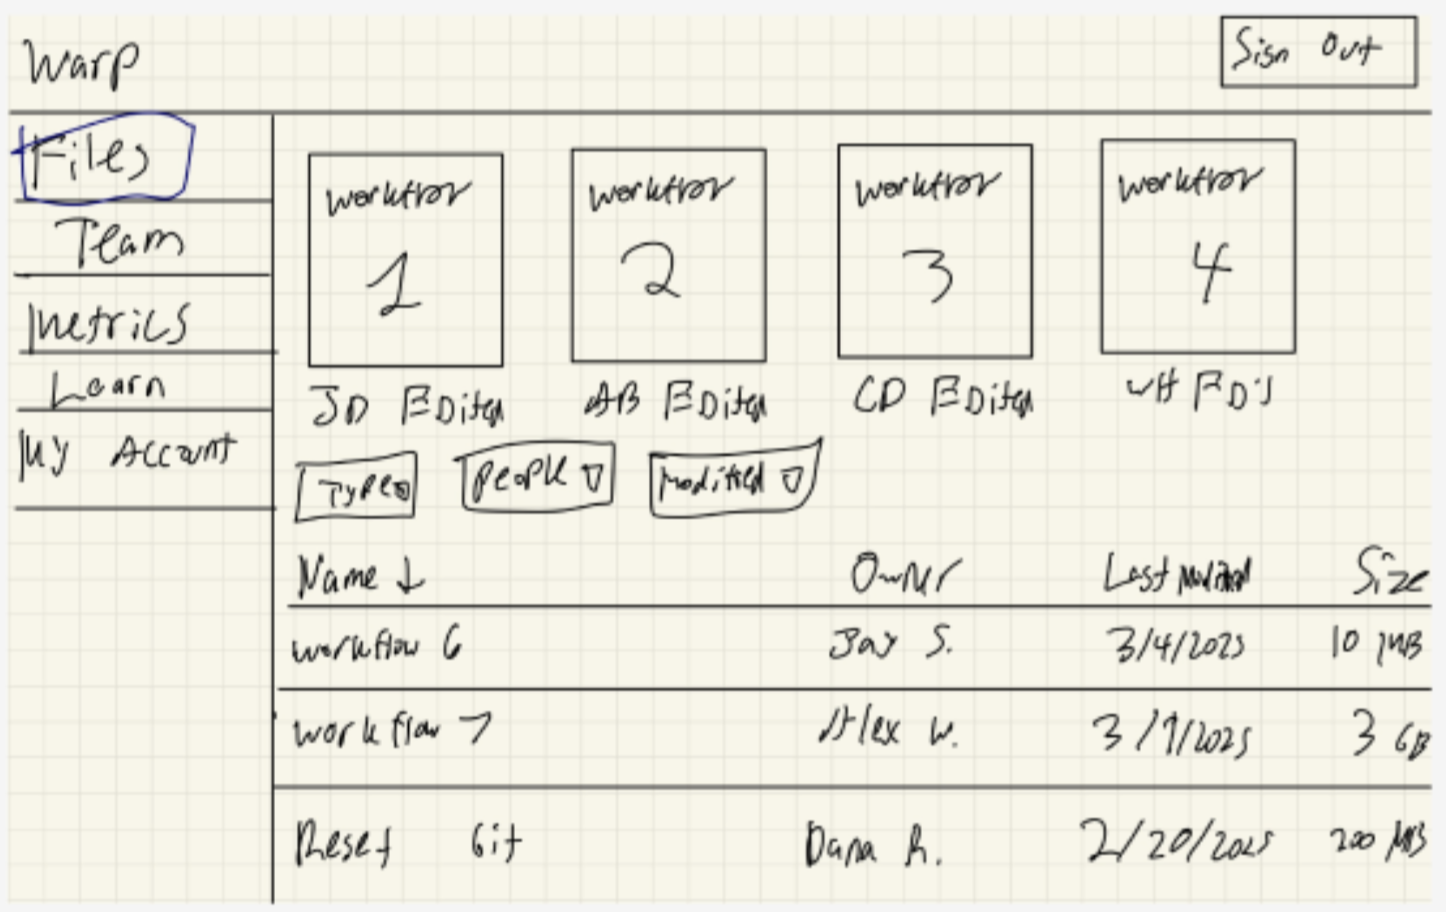 Warp
Sign Out
Files
Team
Metrics
Learn
My Account
Workflow 1
Workflow 2
Workflow 3
Workflow 4
JD Edited
AB Edited
CD Edited
Type
People
Modified
Name ↓ Owner Last Modified Size
workflow 6 Jay S. 3/4/2025 10 MB
workflow 7 Alex W. 3/1/2025 3 GB
Reset Git Dana R. 2/20/2025 200 MB